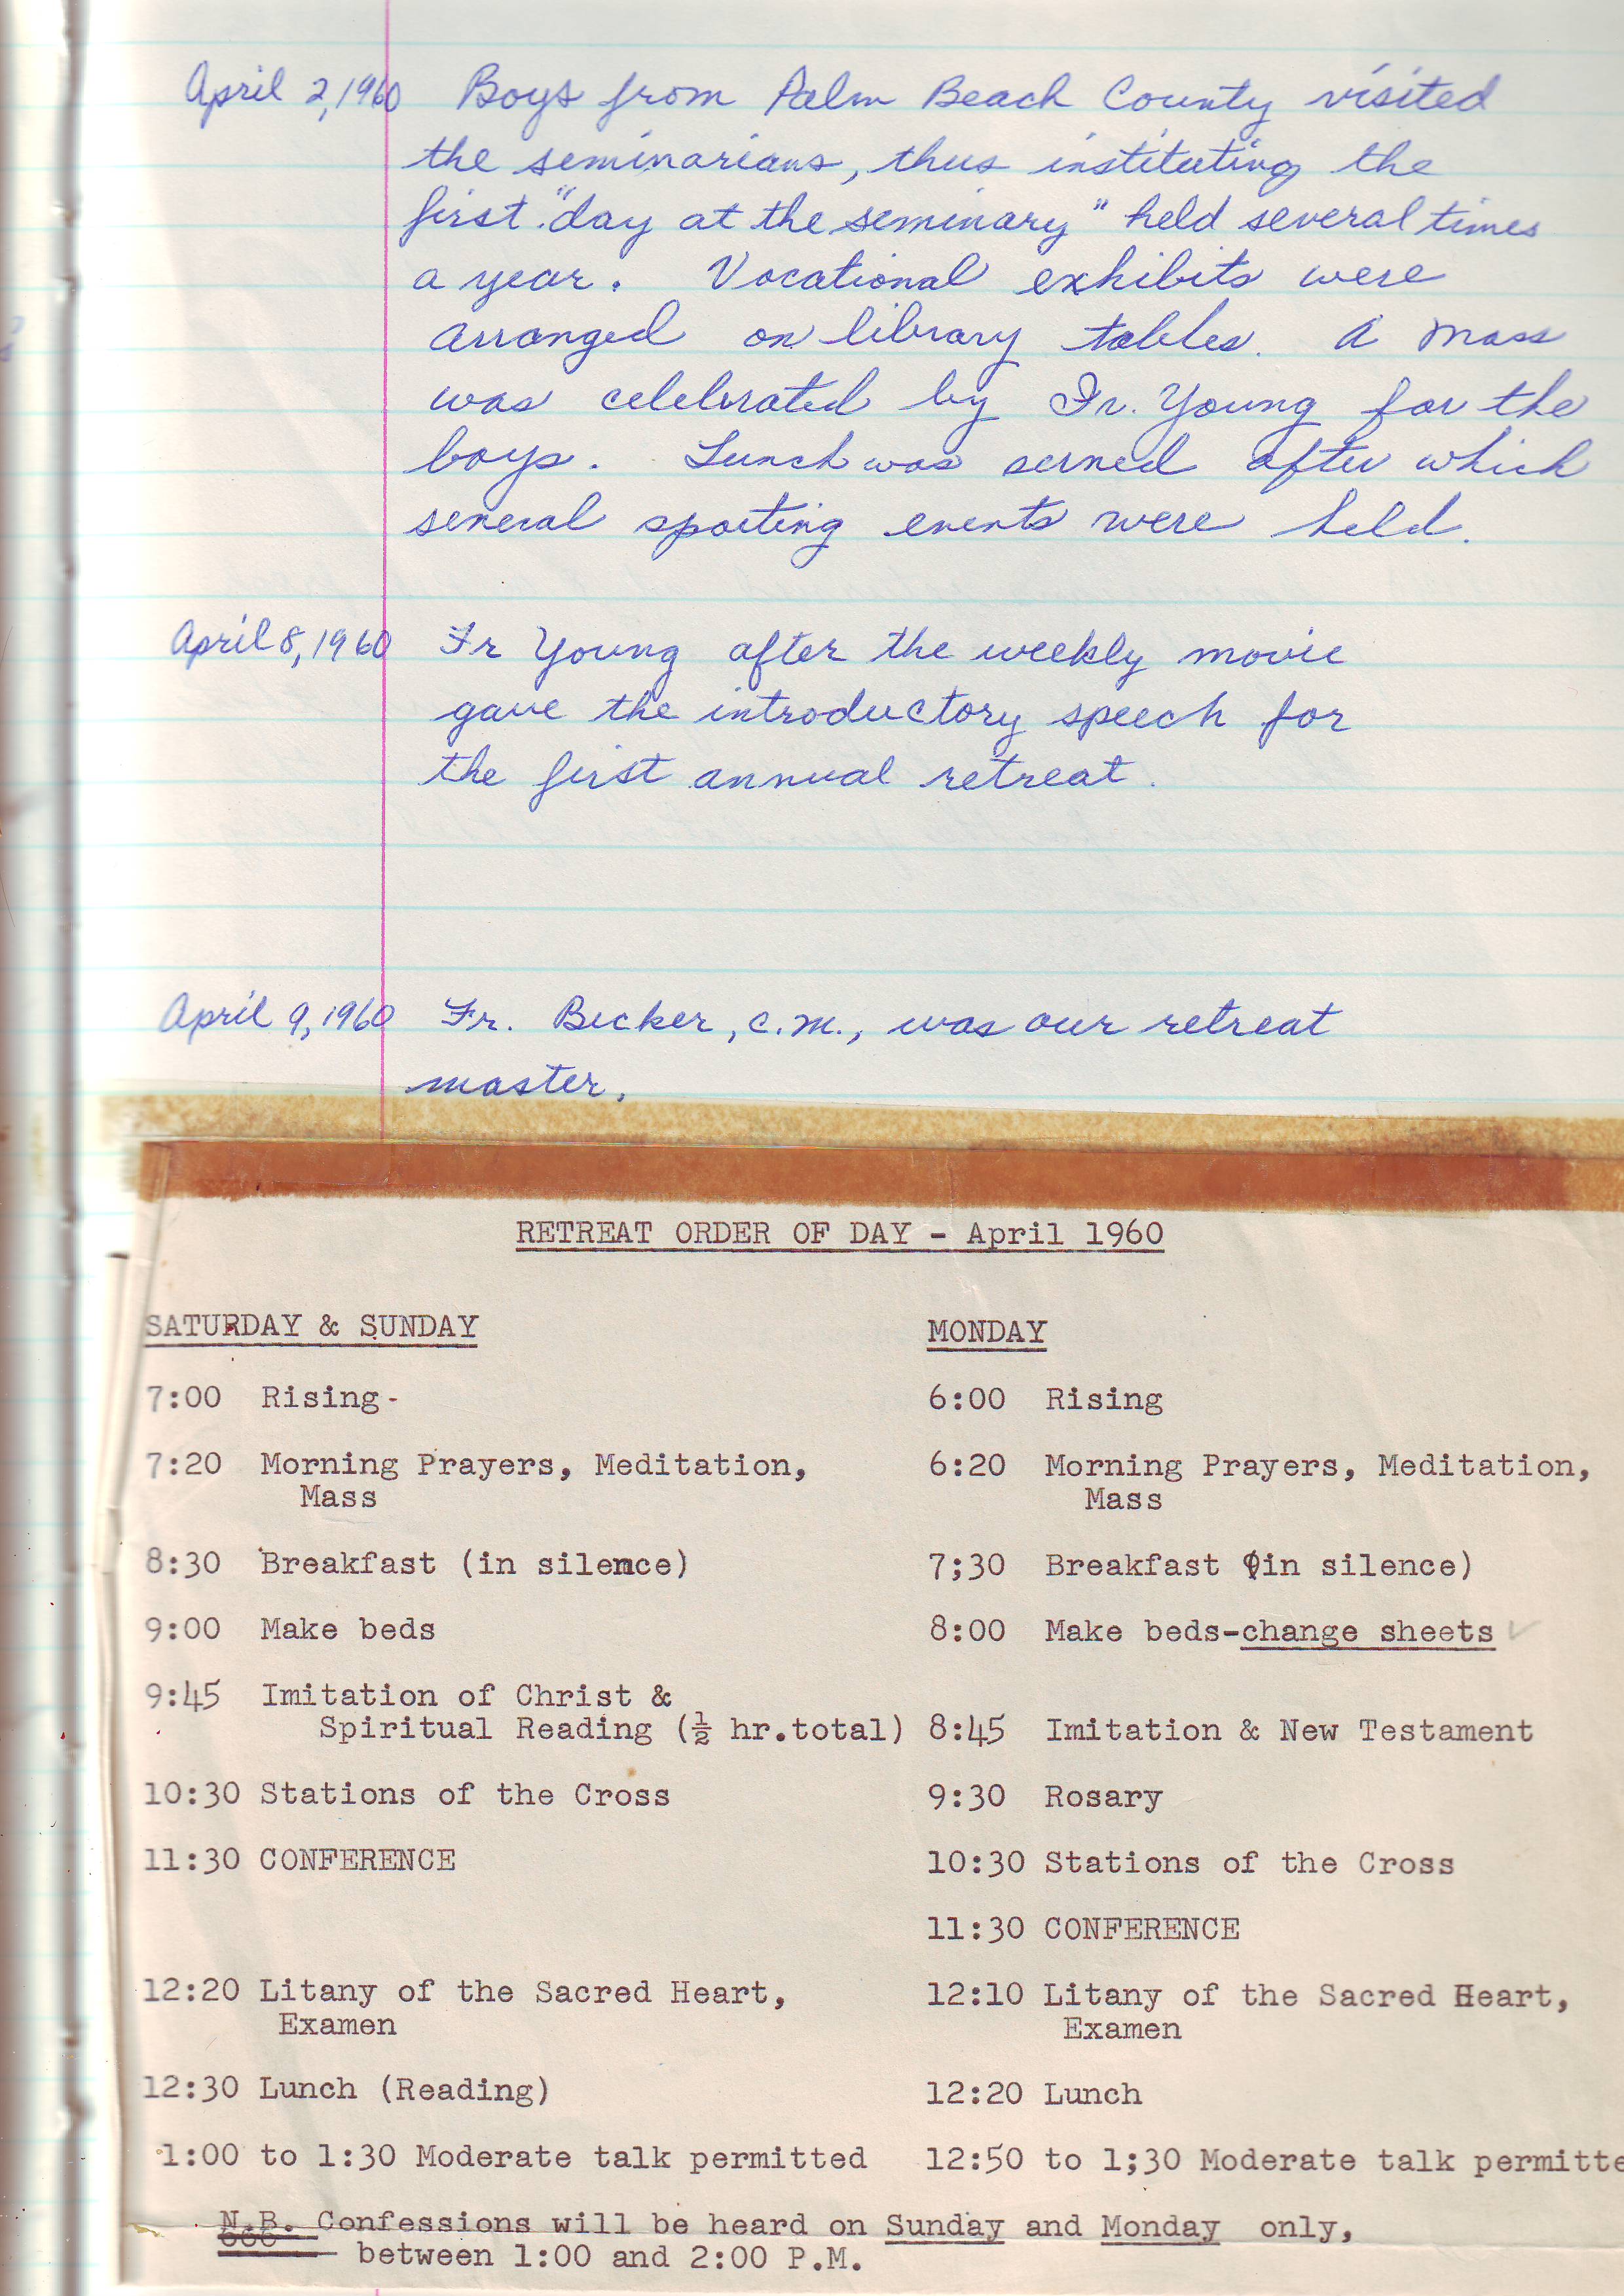 April 2, 1960 Boys from Palm Beach County visited
the seminarians, thus instituting the
first "day at the seminary" held several times
a year. Vocational exhibits were
arranged on library tables. A Mass
was celebrated by Fr. Young for the
boys. Lunch was served after which
several sporting events were held.
April 8, 1960 Fr Young after the weekly movie
gave the introductory speech for
the first annual retreat.
April 9, 1960 Fr. Becker, c.m., was our retreat
master.
RETREAT ORDER OF DAY - April 1960
SATURDAY & SUNDAY
7:00 Rising-
7:20 Morning Prayers, Meditation,
Mass
8:30 Breakfast (in silence)
9:00 Make beds
9:45 Imitation of Christ &
Spiritual Reading (½ hr.total)
10:30 Stations of the Cross
11:30 CONFERENCE
12:20 Litany of the Sacred Heart,
Examen
12:30 Lunch (Reading)
1:00 to 1:30 Moderate talk permitted
MONDAY
6:00 Rising
6:20 Morning Prayers, Meditation,
Mass
7;30 Breakfast (in silence)
8:00 Make beds-change sheets
8:45 Imitation & New Testament
9:30 Rosary
10:30 Stations of the Cross
11:30 CONFERENCE
12:10 Litany of the Sacred Heart,
Examen
12:20 Lunch
12:50 to 1;30 Moderate talk permitte
N.B. Confessions will be heard on Sunday and Monday only,
between 1:00 and 2:00 P.M.